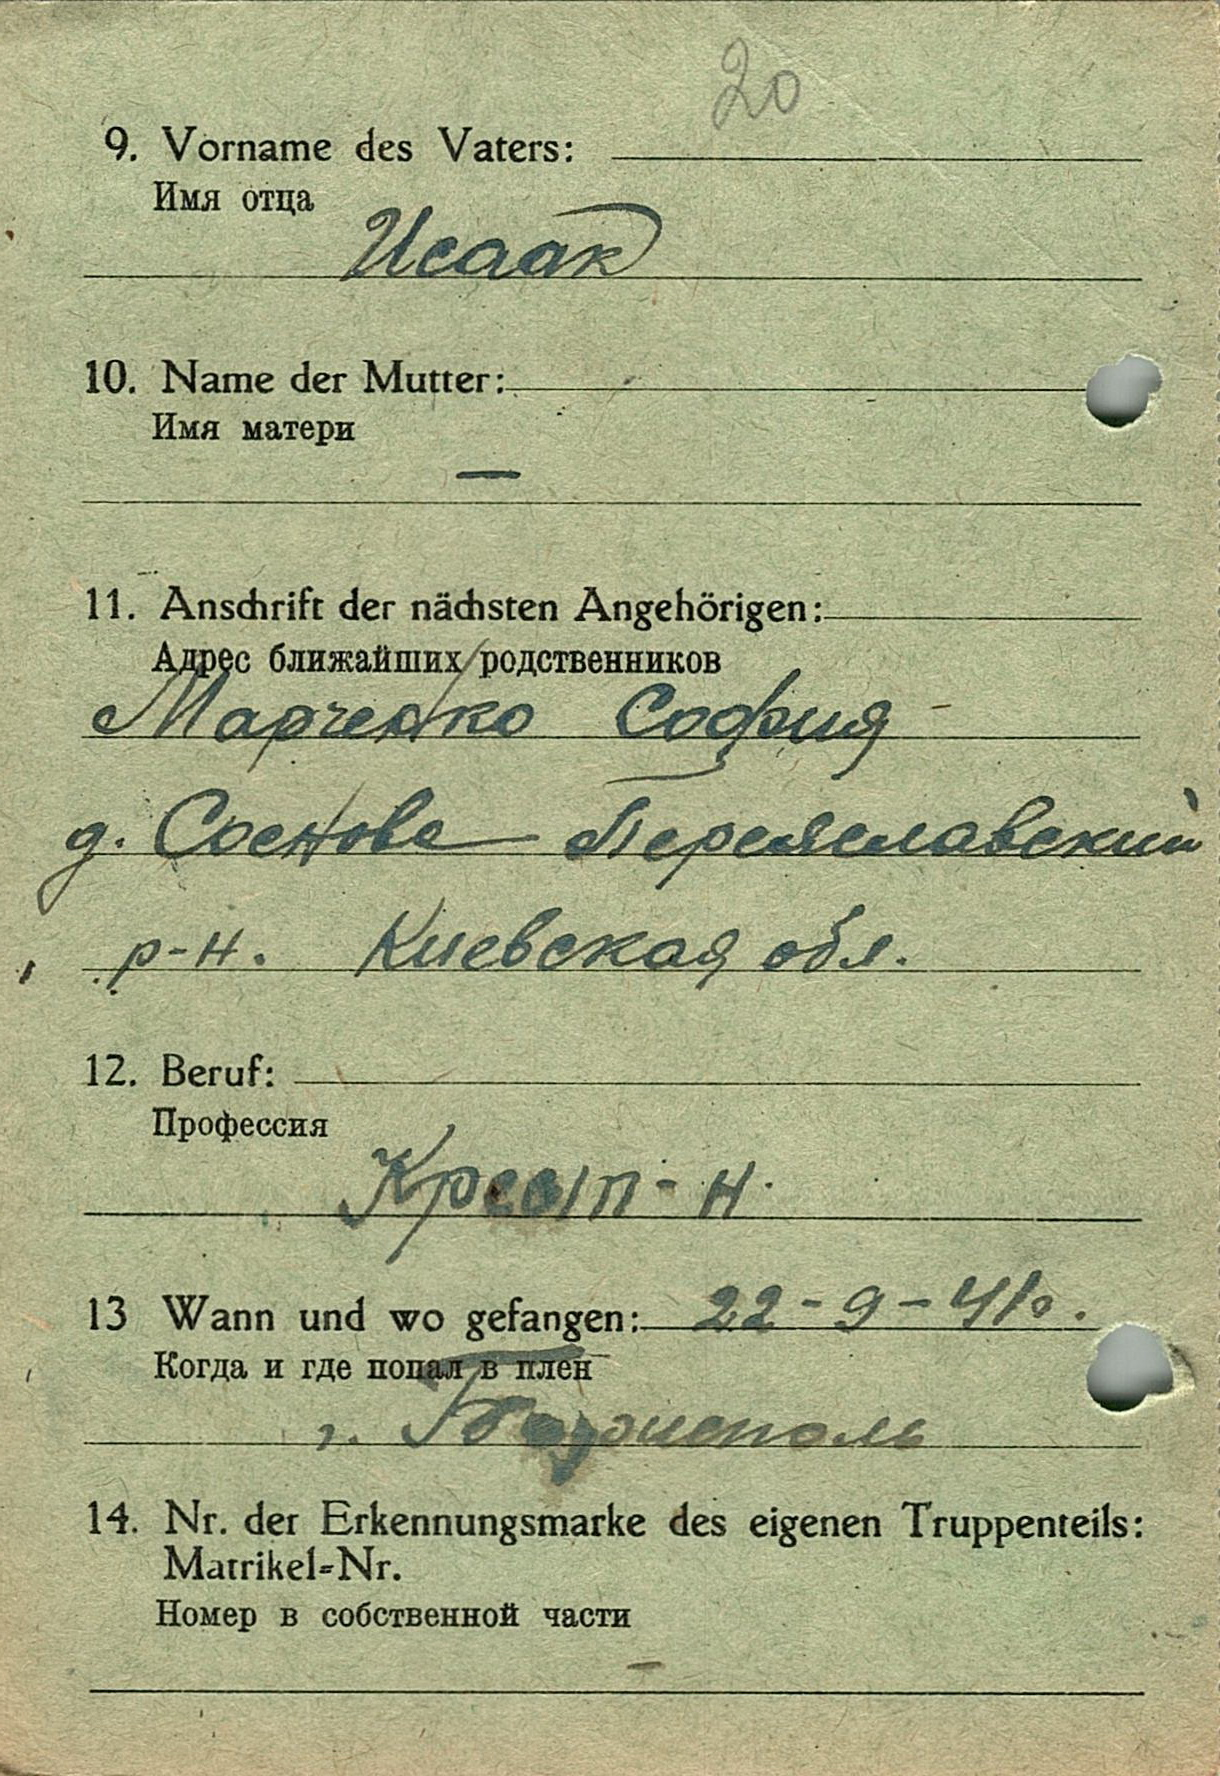 20
9. Vorname des Vaters:
Имя отца
Исаак
10. Name der Mutter:
Имя матери
—
11. Anschrift der nächsten Angehörigen:
Адрес ближайших родственников
Марченко София -
д. Соснове Переяславский
р-н. Киевская обл.
12. Beruf:
Профессия
Крест-н.
13 Wann und wo gefangen: 22-9-41г.
Когда и где попал в плен
г. Борисполь
14. Nr. der Erkennungsmarke des eigenen Truppenteils:
Matrikel-Nr.
Номер в собственной части
—